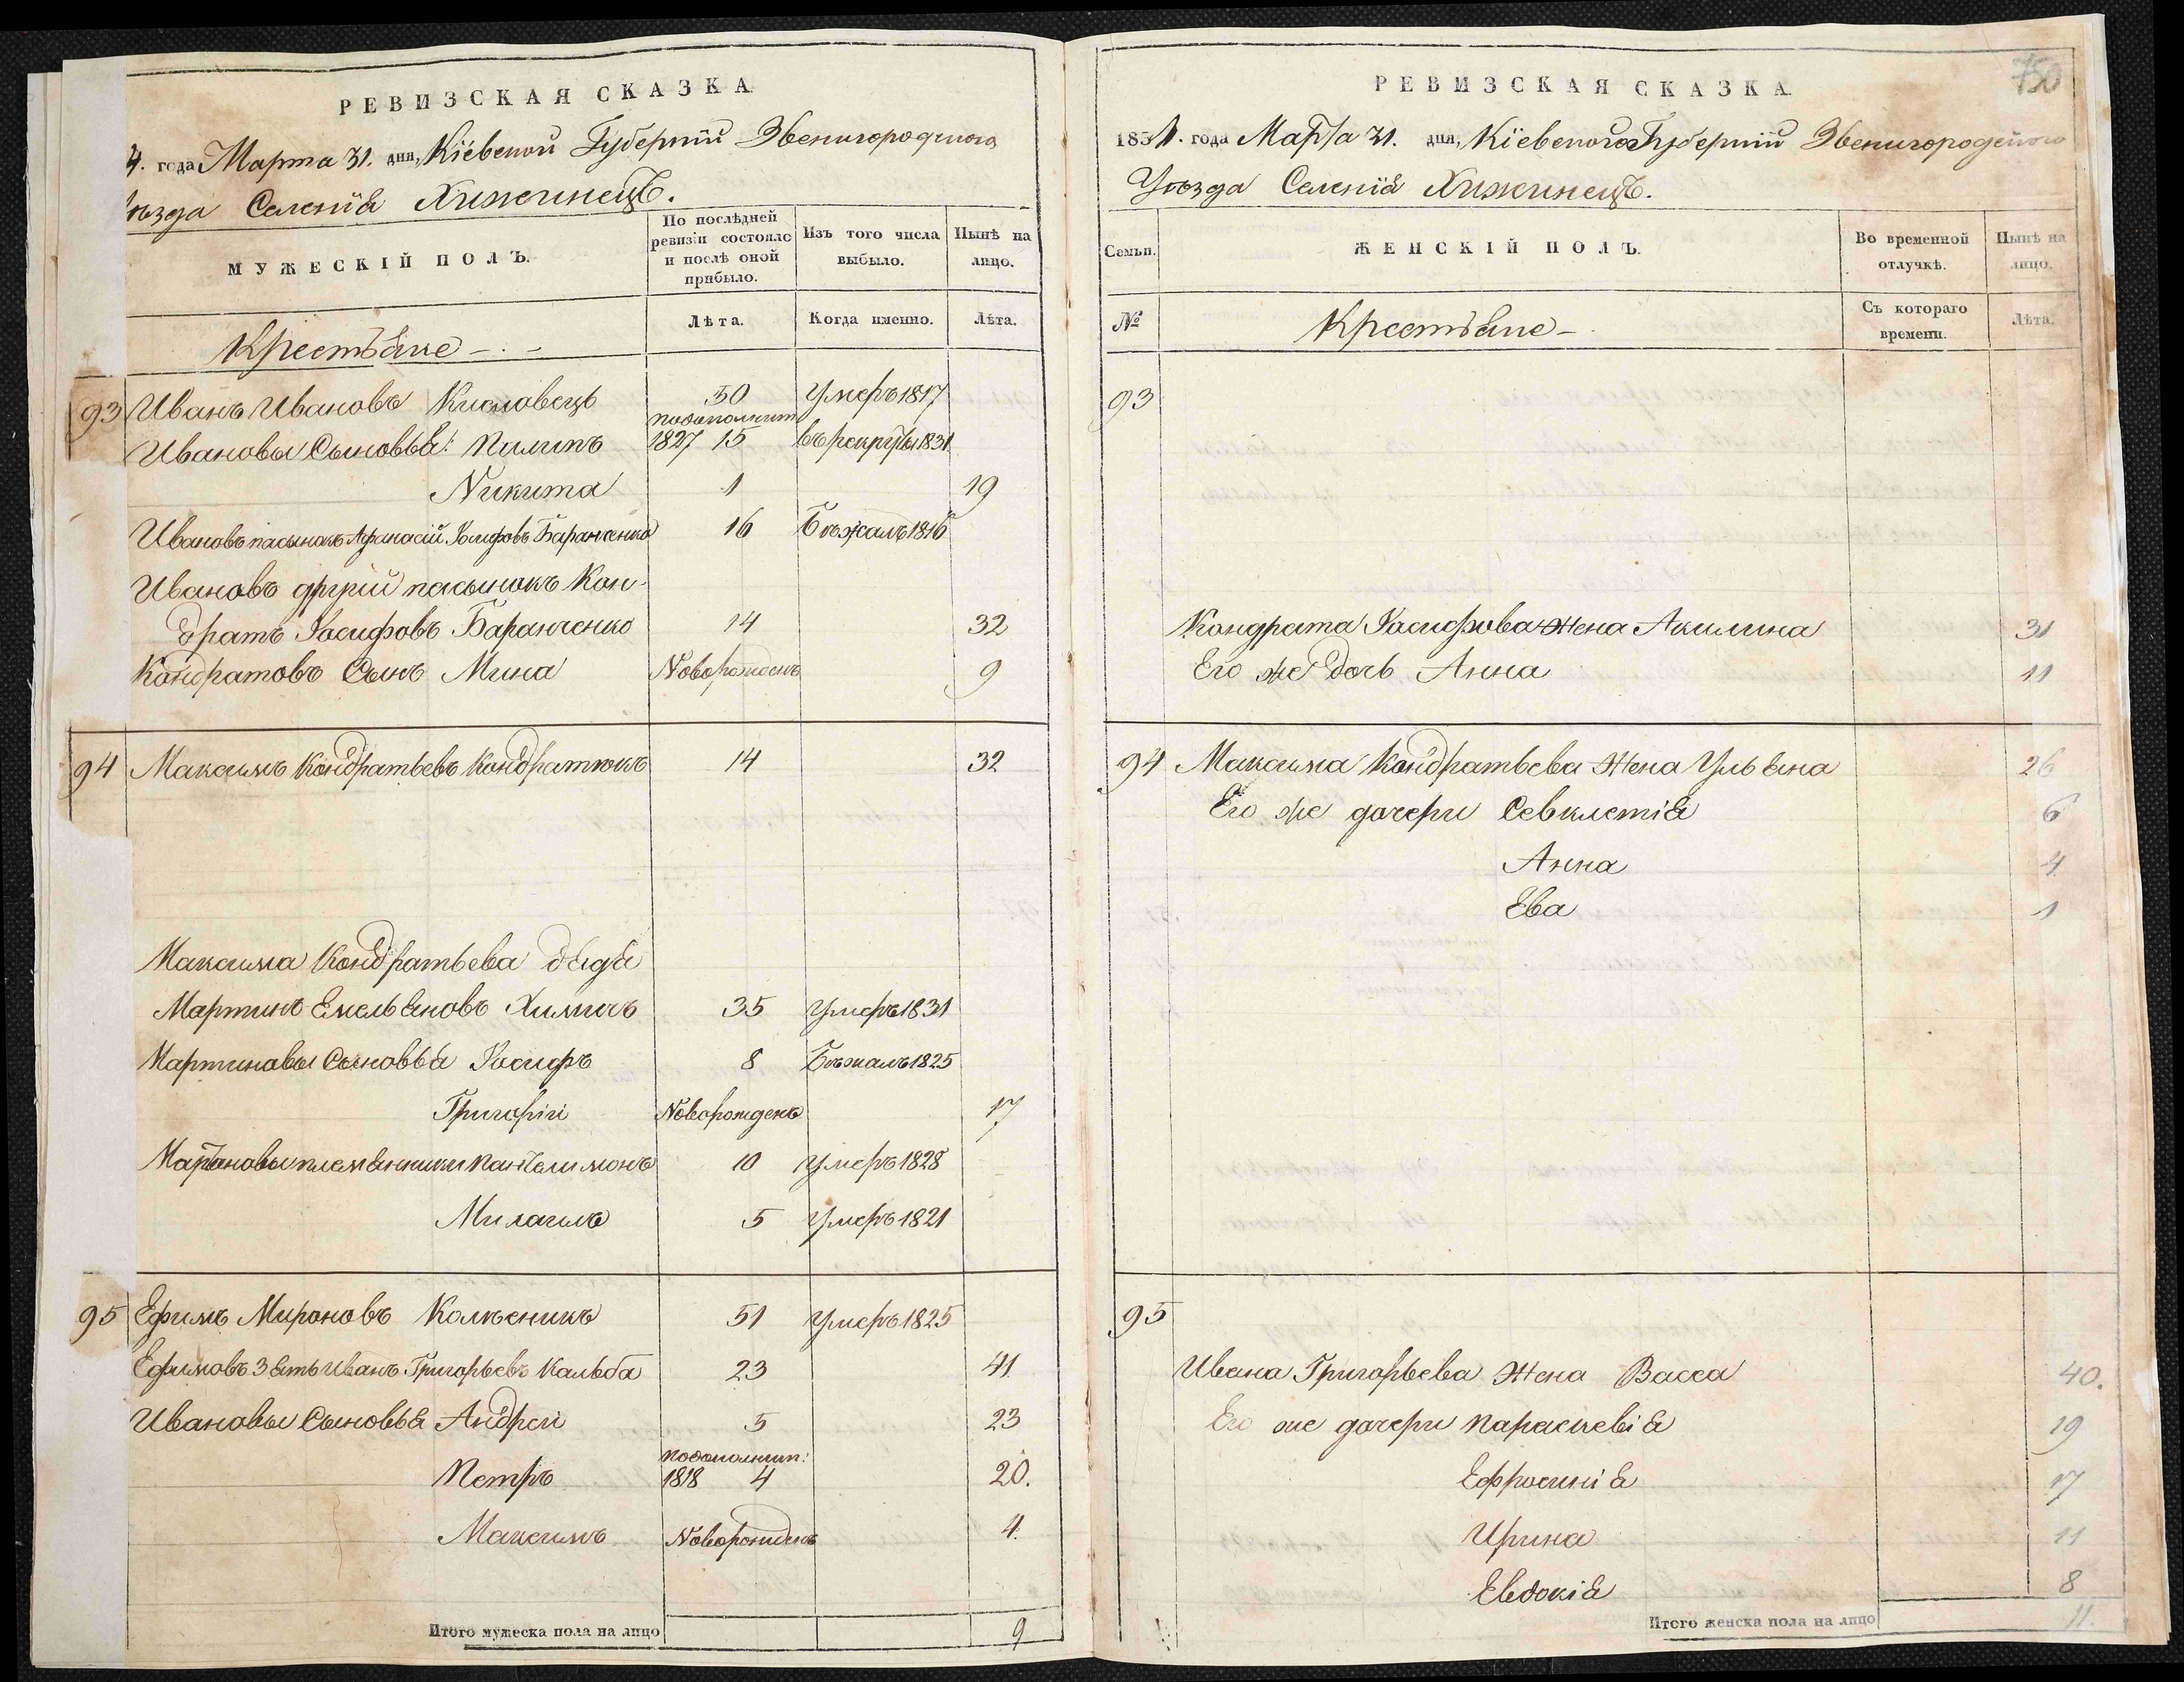 РЕВИЗСКАЯ СКАЗКА
4. года Марта 31. дня, Кіевской Губерніи Звенигородскаго
ѣзда Селенія Хижинецъ.
МУЖЕСКІЙ ПОЛЪ.
По послѣдней ревизіи состояло и послѣ оной прибыло.
Изъ того числа выбыло.
Нынѣ на лицо.
Крестьяне
Лѣта.
Когда именно.
Лѣта.
93 Иванъ Ивановъ Кисловецъ 30 Умеръ 1817
подополнит
Ивановы Сыновья: Пилипъ 1827 15 въ рекруты 1831
Никита 1 19
Ивановъ пасынокъ Афанасій Іосифовъ Баранченко 16 Бѣжалъ 1816
Ивановъ другій пасынокъ Кон-
дратъ Іосифовъ Баранченко 14 32
Кондратовъ Сынъ Мина Новорожденъ 9
94 Максимъ Кондратьевъ Кондратюкъ 14 32
Максима Кондратьева дядя
Мартинъ Емельяновъ Химичъ 35 Умеръ 1831
Мартиновы Сыновья Іосифъ 8 Бѣжалъ 1825
Григорій Новорожденъ 17
Мартиновы племянники Пантелимонъ 10 Умеръ 1828
Михаилъ 5 Умеръ 1821
95 Ефимъ Мироновъ Колѣсникъ 51 Умеръ 1825
Ефимовъ Зять Иванъ Григорьевъ Кальба 23 41
Ивановы Сыновья Андрей 5 23
подополнит:
Петръ 1818 4 20.
Максимъ Новорожденъ 4.
Итого мужеска пола на лицо 9
750
РЕВИЗСКАЯ СКАЗКА
1834. года Марта 31. дня, Кіевской Губерніи Звенигородскаго
Уѣзда Селенія Хижинецъ.
Семьи.
ЖЕНСКІЙ ПОЛЪ.
Во временной отлучкѣ.
Нынѣ на лицо.
№
Крестьяне
Съ котораго времени.
Лѣта.
93
Кондрата Іосифова жена Акилина 31
Его же дочь Анна 11
94 Максима Кондратьева Жена Ульяна 26
Его же дочери Севклетія 6
Анна 4
Ева 1
95
Ивана Григорьева Жена Васса 40.
Его же дочери Параскевія 19
Ефросинія 17
Ирина 11
Евдокія 8
Итого женска пола на лицо 11.